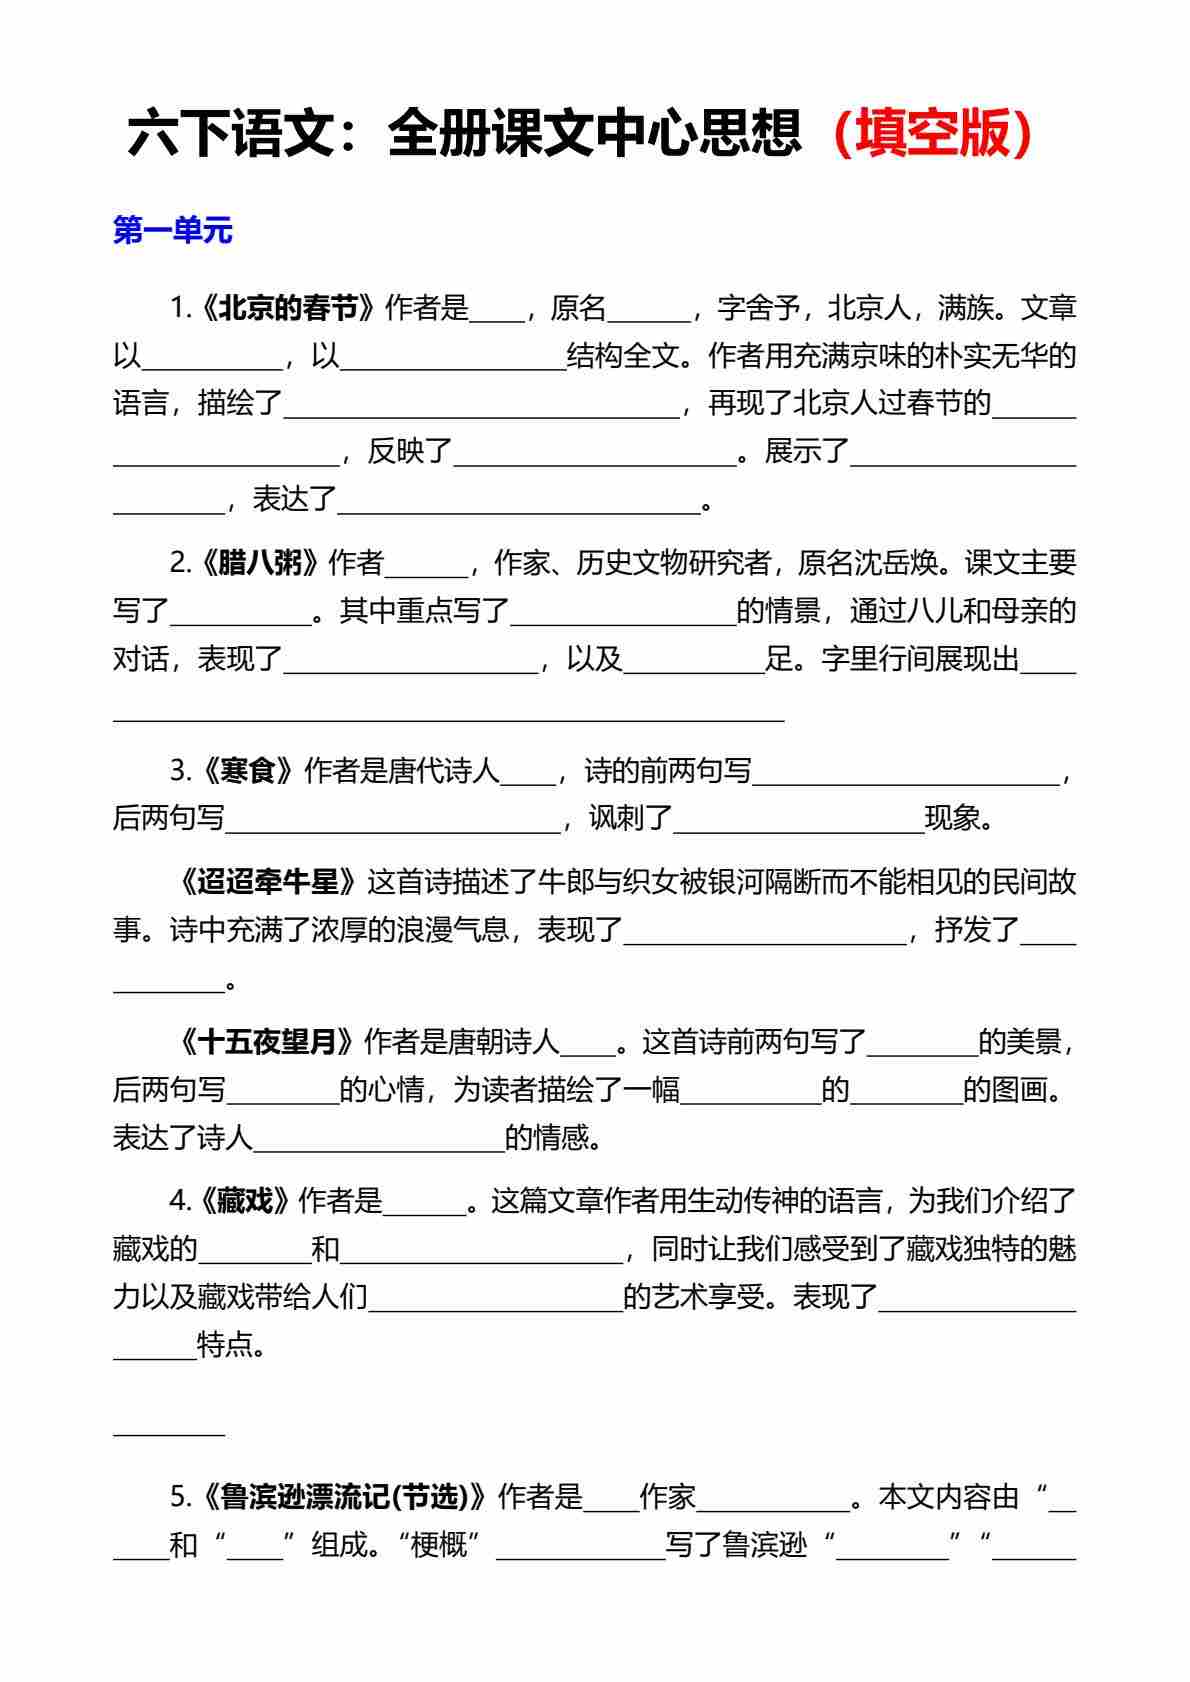 六下语文：全册课文中心思想（填空版）
第一单元
1.《北京的春节》作者是____，原名______，字舍予，北京人，满族。文章
以__________，以________________结构全文。作者用充满京味的朴实无华的
语言，描绘了____________________________，再现了北京人过春节的______
________________，反映了____________________。展示了________________
________，表达了__________________________。
2.《腊八粥》作者______，作家、历史文物研究者，原名沈岳焕。课文主要
写了__________。其中重点写了________________的情景，通过八儿和母亲的
对话，表现了__________________，以及__________足。字里行间展现出____
________________________________________________
3.《寒食》作者是唐代诗人____，诗的前两句写______________________，
后两句写________________________，讽刺了__________________现象。
《迢迢牵牛星》这首诗描述了牛郎与织女被银河隔断而不能相见的民间故
事。诗中充满了浓厚的浪漫气息，表现了____________________，抒发了____
________。
《十五夜望月》作者是唐朝诗人____。这首诗前两句写了________的美景，
后两句写________的心情，为读者描绘了一幅__________的________的图画。
表达了诗人__________________的情感。
4.《藏戏》作者是______。这篇文章作者用生动传神的语言，为我们介绍了
藏戏的________和____________________，同时让我们感受到了藏戏独特的魅
力以及藏戏带给人们__________________的艺术享受。表现了______________
______特点。
________
5.《鲁滨逊漂流记(节选)》作者是____作家___________。本文内容由“__
____和“____”组成。“梗概”____________写了鲁滨逊“________”“______